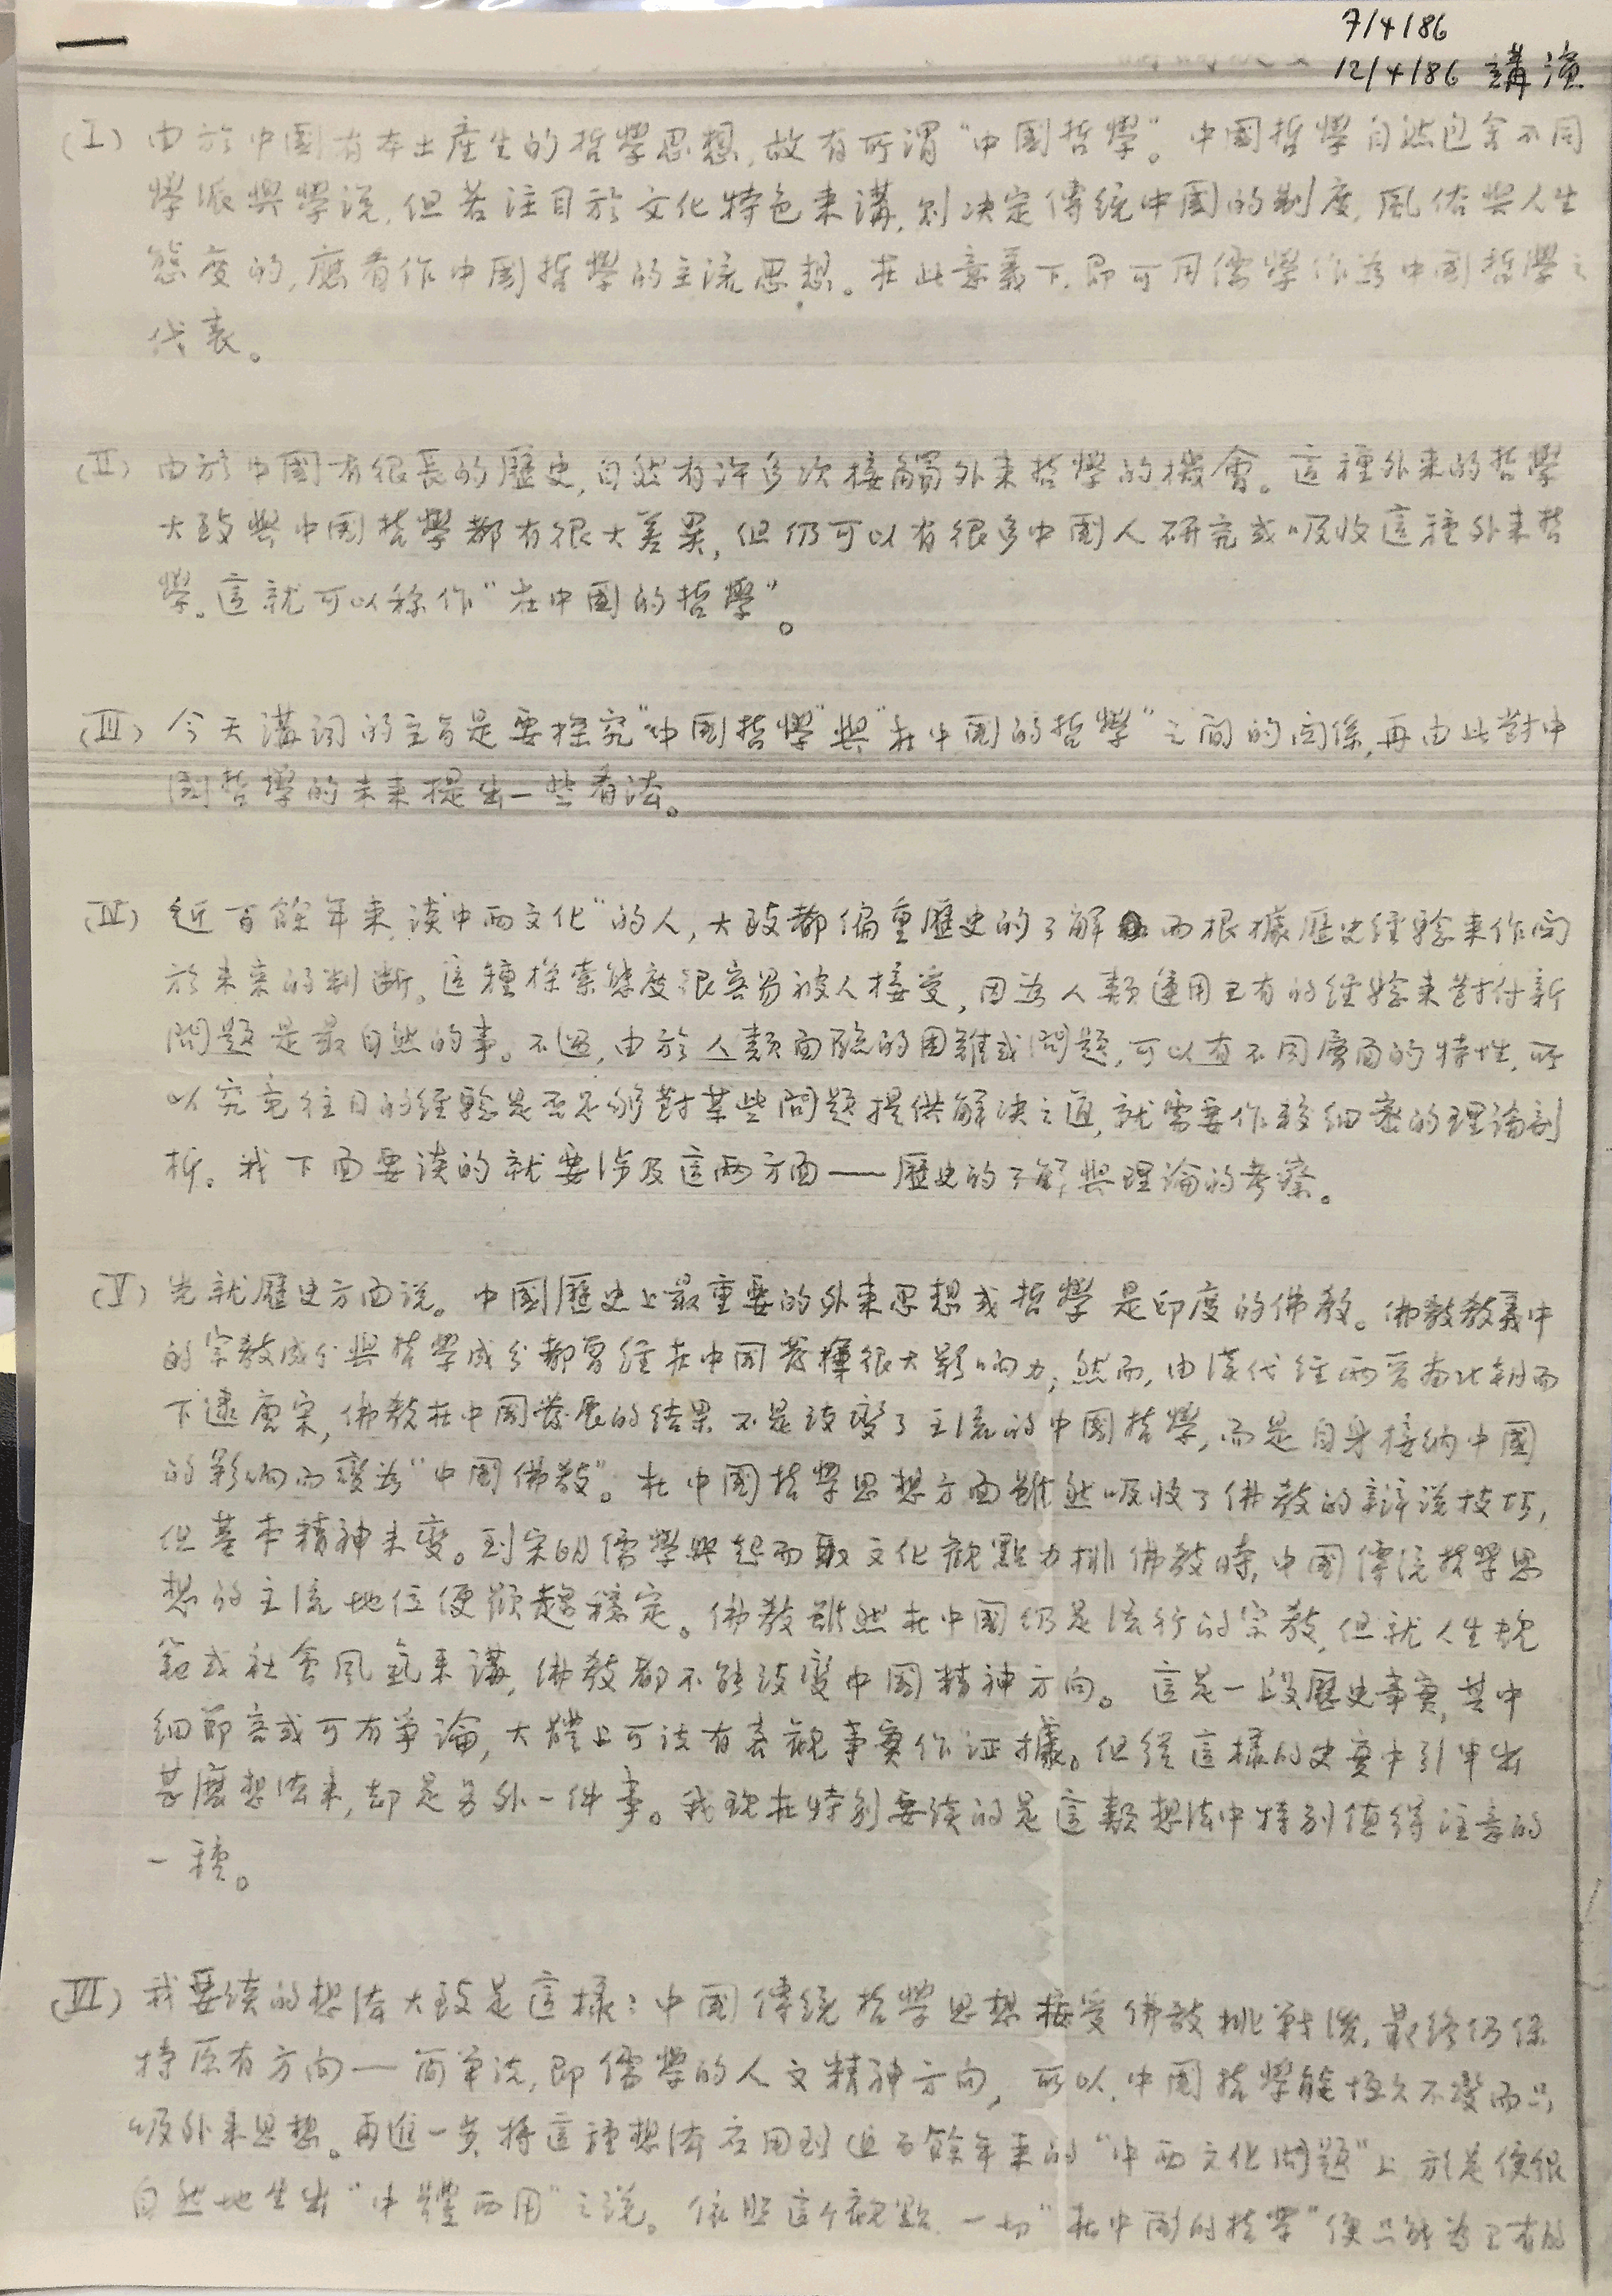 7/4/86
12/4/86 講演
(I) 由於中國有本土產生的哲學思想,故有所謂“中国哲學”。中國哲學自然包含不同
學派與學說,但若注目於文化特色來講,則决定傳統中國的制度,風俗與人生
態度的,應看作中國哲學的主流思想。在此意義下,即可用儒學作為中國哲學之
代表。
(II) 由於中國有很長的歷史,自然有许多次接觸外来哲學的機會。這種外来的哲學
大致與中国哲學都有很大差異,但仍可以有很多中國人研究或吸收這種外来哲
學。這就可以称作“在中國的哲學”。
(III) 今天講詞的主旨是要探究“中國哲學”與“在中國的哲學”之間的関係,再由此對中
國哲學的未来提出一些看法。
(IV) 近百餘年来,談“中西文化”的人,大致都偏重歷史的了解而根據歷史經驗来作関
於未来的判斷。這種探索態度很容易被人接受,因為人類運用已有的經驗来對付新
問題是最自然的事。不過,由於人類面臨的困難或問題,可以有不同層面的特性,所
以究竟往日的經驗是否足够對某些問題提供解决之道,就需要作較細密的理論剖
析。我下面要談的就要涉及這兩方面——歷史的了解與理論的考察。
(V) 先就歷史方面說。中國歷史上最重要的外来思想或哲學是印度的佛教。佛教教義中
的宗教成分與哲學成分都曾經在中國發揮很大影响力;然而,由漢代經兩晋南北朝而
下逮唐宋,佛教在中國發展的結果不是改變了主流的中國哲學,而是自身接納中國
的影响而變為“中国佛教”。在中國哲學思想方面雖然吸收了佛教的辯說技巧,
但基本精神未變。到宋明儒學興起而取文化觀點力排佛教時,中國傳統哲學思
想的主流地位便顯趨穩定。佛教雖然在中國仍是流行的宗教,但就人生規
範或社會風氣来講,佛教都不能改變中國精神方向。這是一段歷史事實,其中
細節容或可有爭論,大體上可說有客觀事實作証據。但從這樣的史實中引申出
甚麼想法来,却是另外一件事。我現在特別要談的是這類想法中特別值得注意的
一種。
(VI) 我要談的想法大致是這樣:中國傳統哲學思想接受佛教挑戰後,最終仍保
持原有方向—简单說,即儒學的人文精神方向,所以,中國哲學能恒久不變而只
吸外来思想。再進一步將這種想法应用到近百餘年来的“中西文化問題”上,於是便很
自然地生出“中體西用”之說。依照這个觀點,一切“在中國的哲學”便只能為已有的